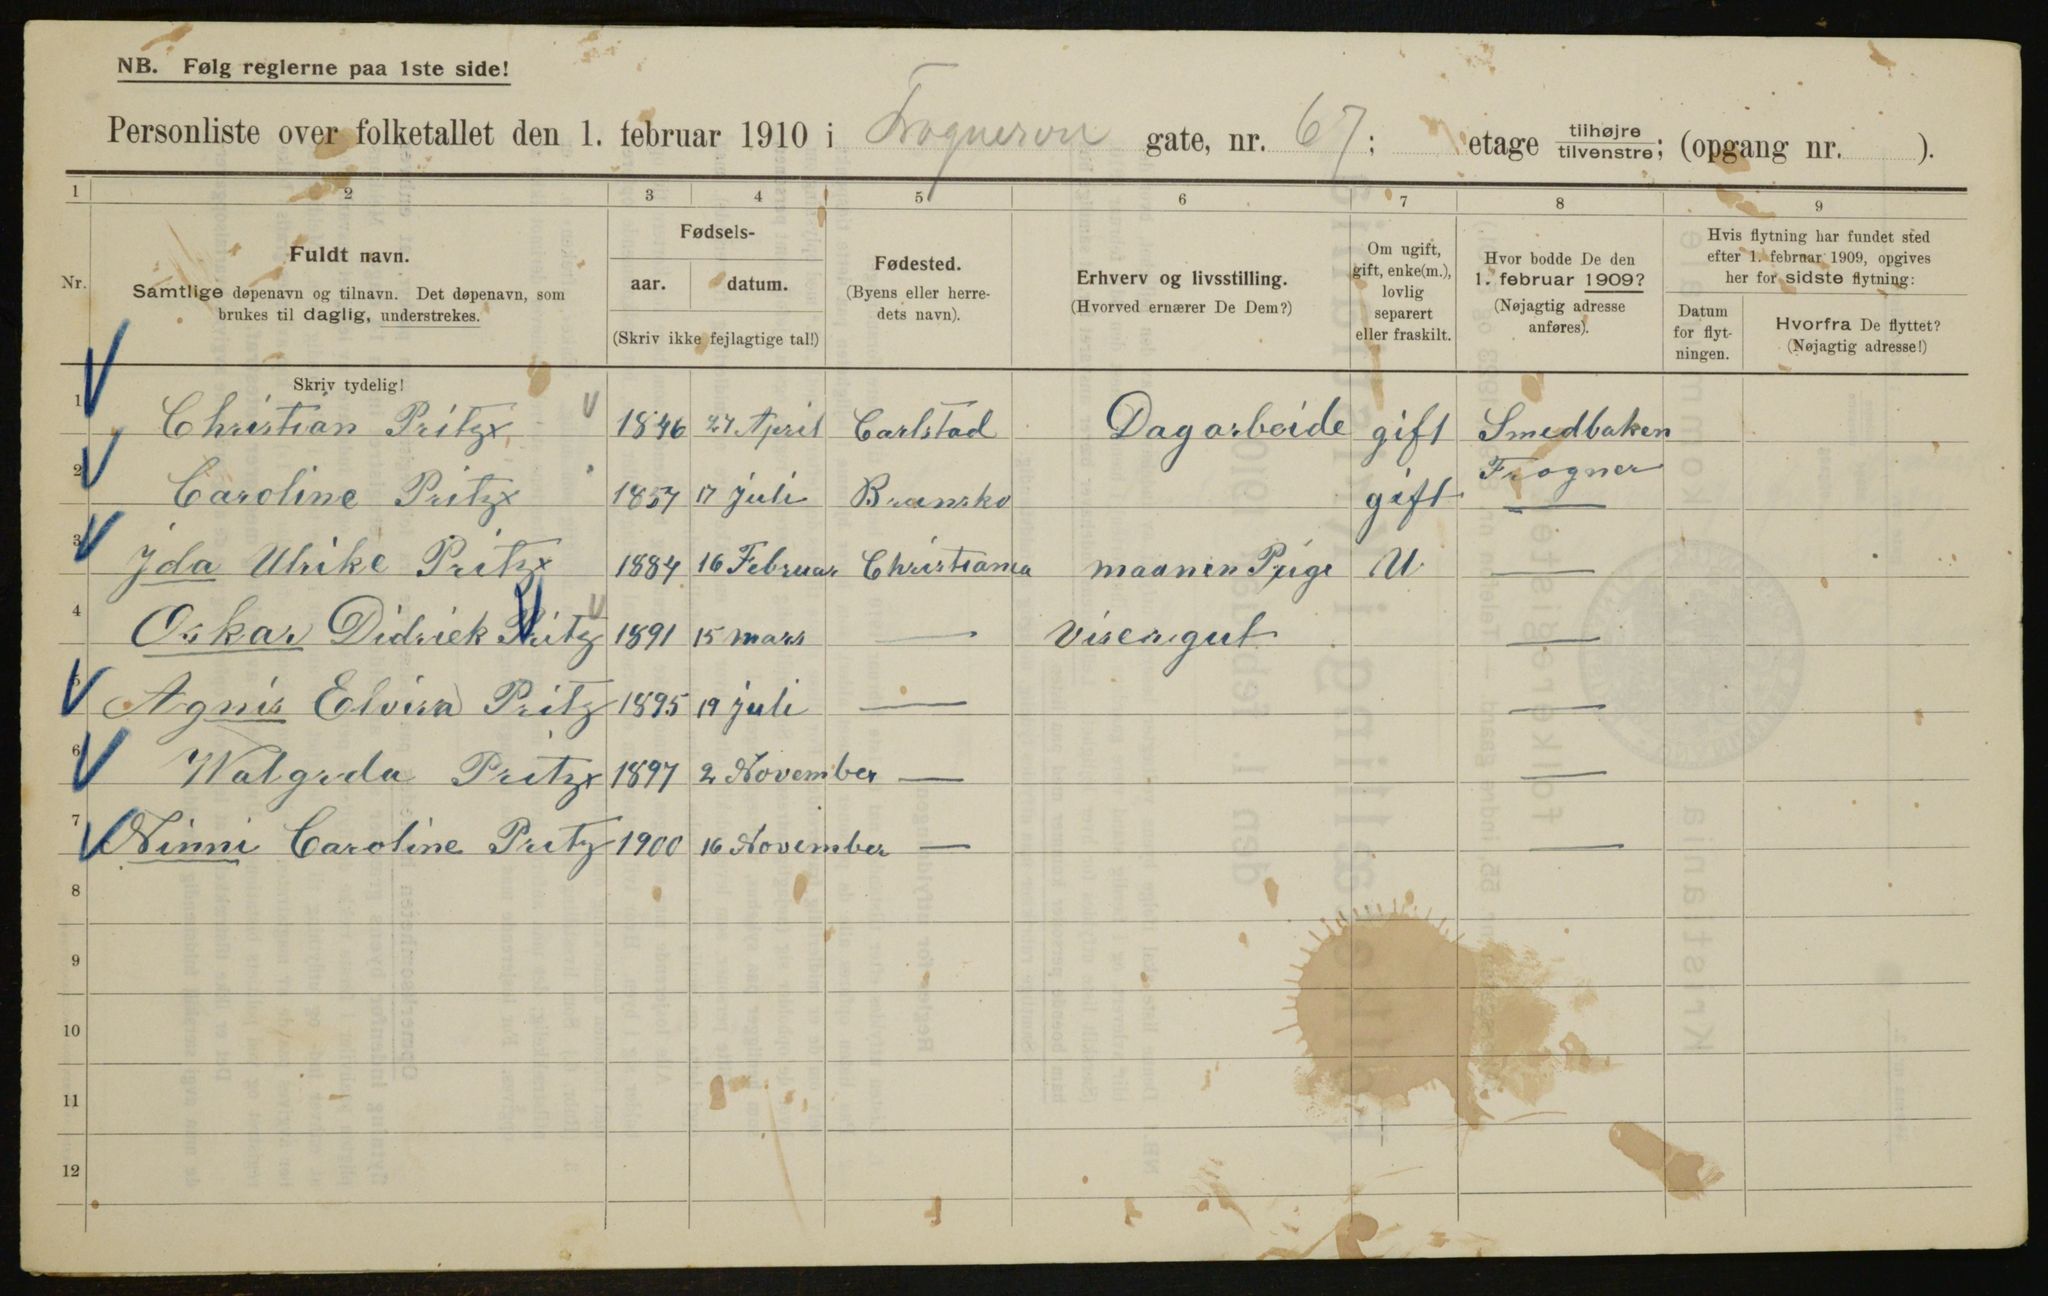 NB. Følg reglerne paa 1ste side!
Personliste over folketallet den 1. februar 1910 i Frogneren gate, nr. 67; etage tilhøjre tilvenstre; (opgang nr. ).
1 2 3 4 5 6 7 8 9
Nr.
Fuldt navn.
Samtlige døpenavn og tilnavn. Det døpenavn, som
brukes til daglig, understrekes.
Fødsels-
aar. datum.
(Skriv ikke fejlagtige tal!)
Fødested.
(Byens eller herre-
dets navn).
Erhverv og livsstilling.
(Hvorved ernærer De Dem?)
Om ugift,
gift, enke(m.),
lovlig
separert
eller fraskilt.
Hvor bodde De den
1. februar 1909?
(Nøjagtig adresse
anføres).
Hvis flytning har fundet sted
efter 1. februar 1909, opgives
her for sidste flytning:
Datum
for flyt-
ningen.
Hvorfra De flyttet?
(Nøjagtig adresse!)
Skriv tydelig!
1 Christian Pritz 1846 27 April Carlstad Dagarbeide gift Smedbaken
Frogner
2 Caroline Pritz 1857 17 juli Brunsko gift —
3 Ida Ulrike Pritz 1884 16 Februar Christiania U —
4 Oskar Didriek Pritz 1891 15 mars — Visergut —
5 Agnis Elvira Pritz 1895 19 juli — —
6 Walgrda Pritz 1897 2 November — —
7 Ninni Caroline Pritz 1900 16 November — —
8
9
10
11
12